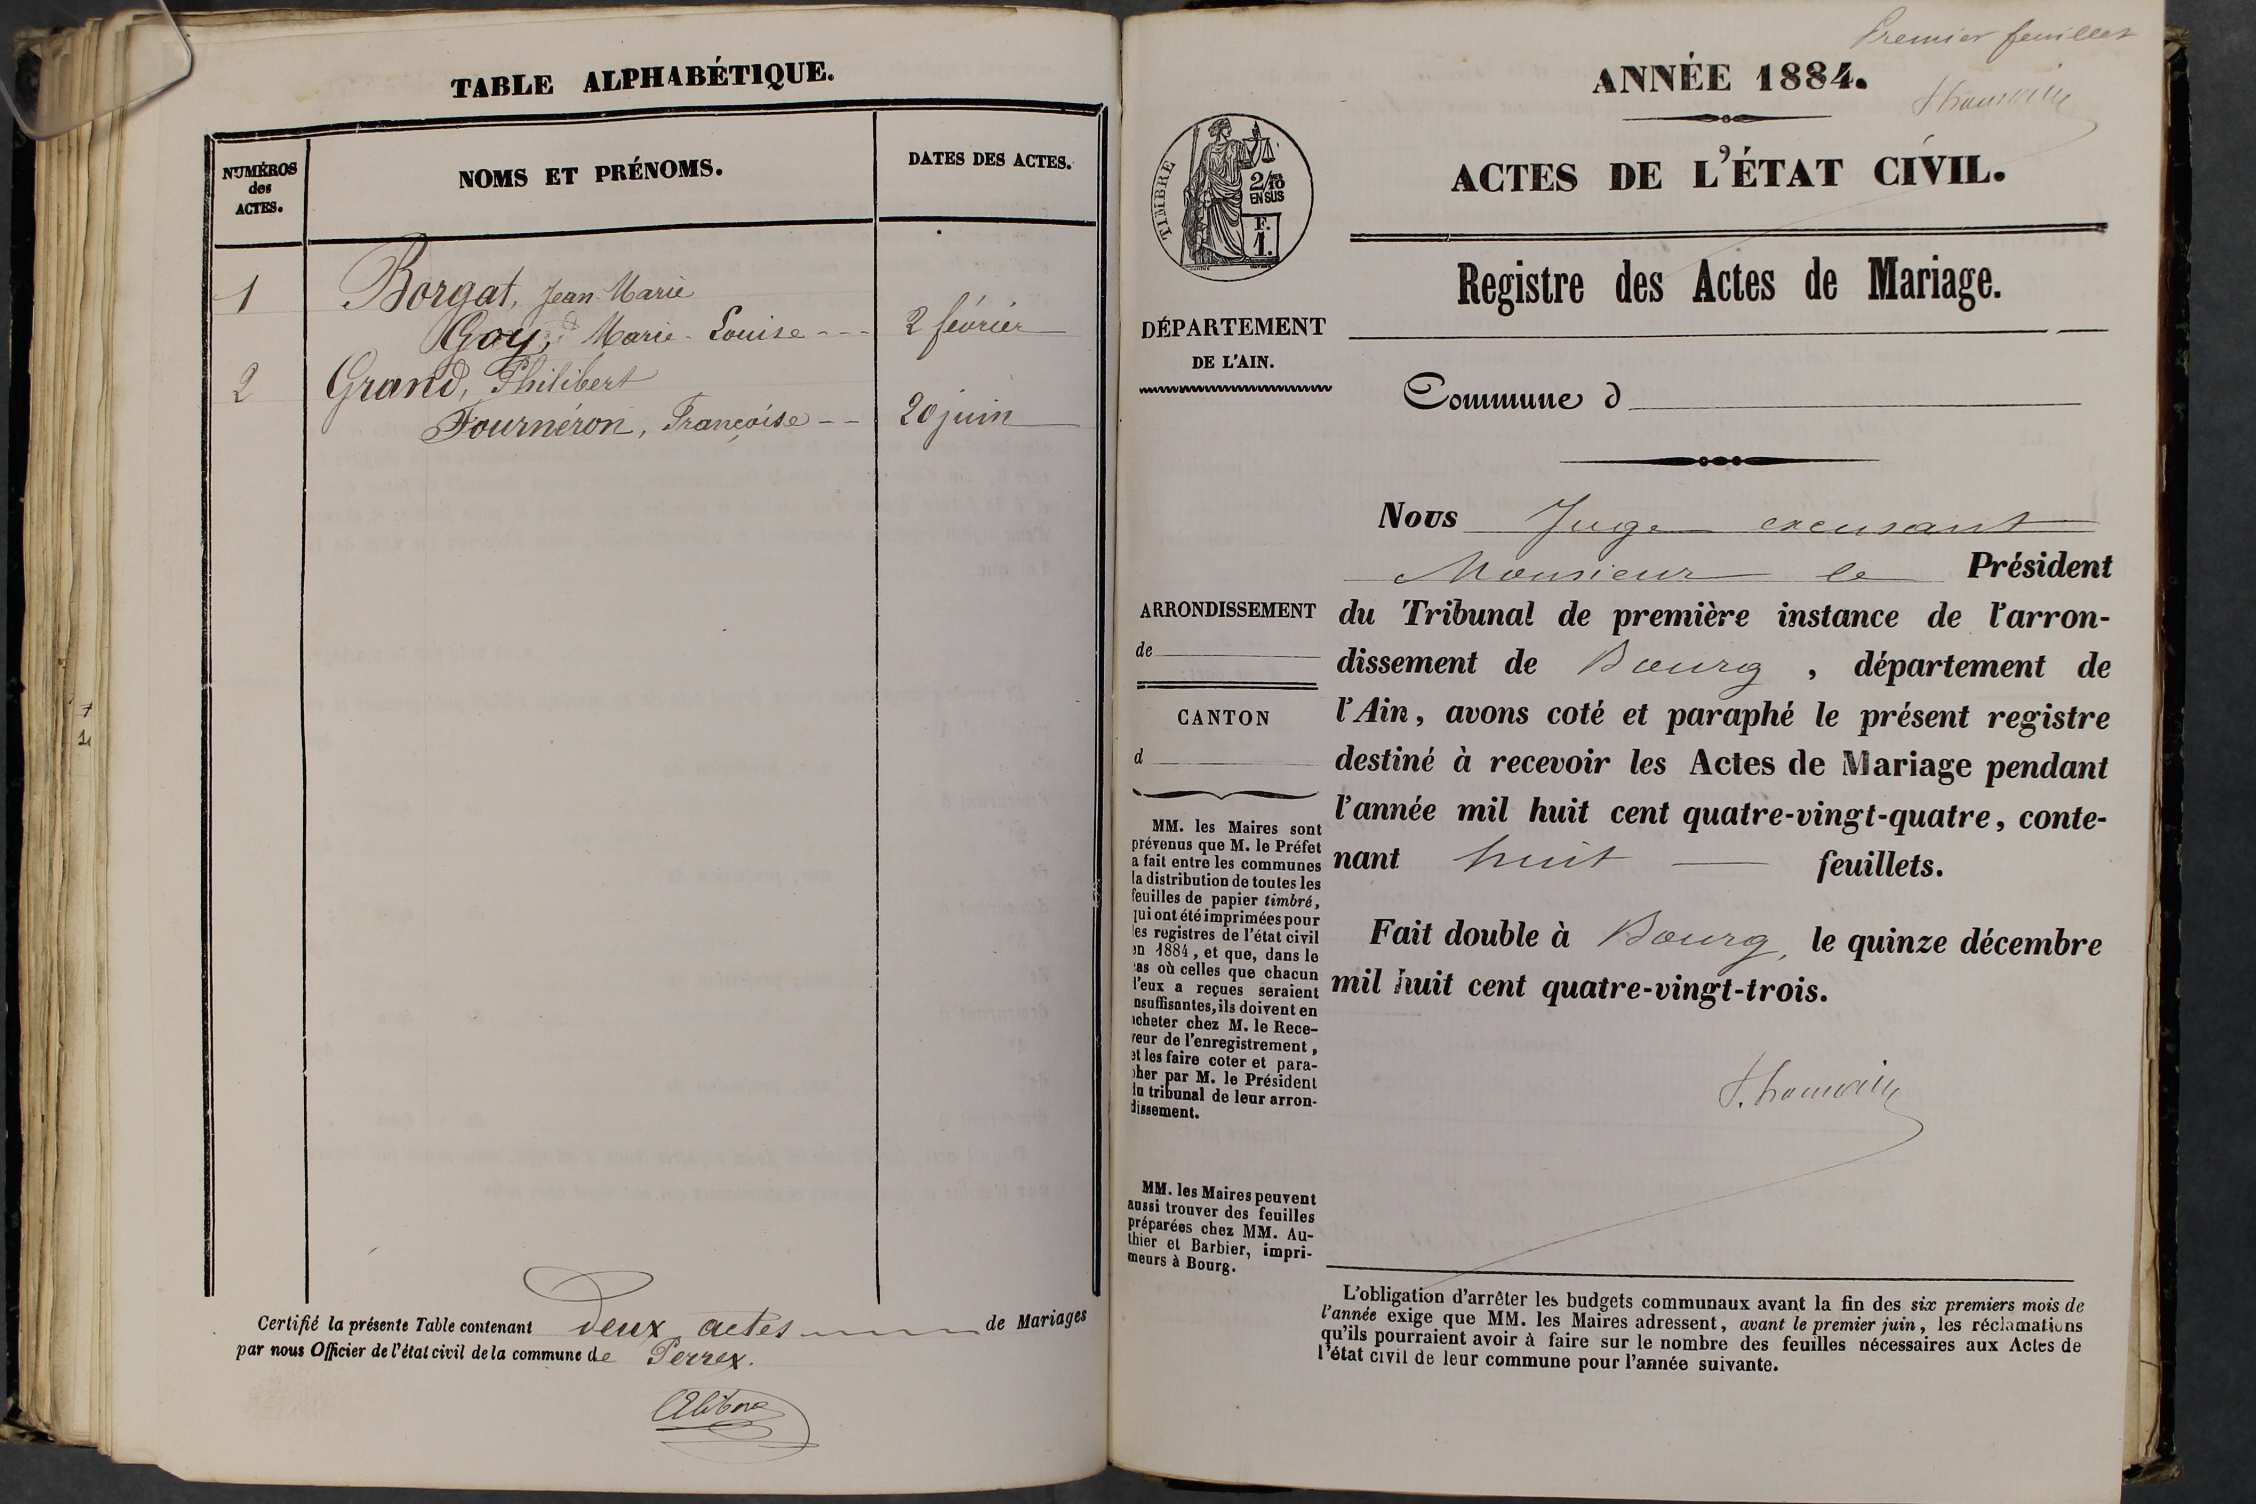 TABLE ALPHABÉTIQUE.
NUMÉROS
des
ACTES.
NOMS ET PRÉNOMS.
DATES DES ACTES.
1
Borgat, Jean-Marie
Goy, Marie-Louise --- 2 février
2
Grand, Philibert
Fournéron, Françoise -- 20 juin
Certifié la présente Table contenant deux actes de Mariages
par nous Officier de l'état civil de la commune de Perrex.
7
Premier feuillet
ANNÉE 1884.
ACTES DE L'ÉTAT CIVIL.
TIMBRE
2/10
EN SUS
F.
1.
Registre des Actes de Mariage.
DÉPARTEMENT
DE L'AIN.
Commune d
Nous Juge excusant
Monsieur le Président
du Tribunal de première instance de l'arron-
dissement de Bourg, département de
l'Ain, avons coté et paraphé le présent registre
destiné à recevoir les Actes de Mariage pendant
l'année mil huit cent quatre-vingt-quatre, conte-
nant huit — feuillets.
Fait double à Bourg, le quinze décembre
mil huit cent quatre-vingt-trois.
ARRONDISSEMENT
de
CANTON
d
MM. les Maires sont
prévenus que M. le Préfet
a fait entre les communes
la distribution de toutes les
feuilles de papier timbré,
qui ont été imprimées pour
les registres de l'état civil
en 1884, et que, dans le
cas où celles que chacun
d'eux a reçues seraient
insuffisantes, ils doivent en
acheter chez M. le Rece-
veur de l'enregistrement,
et les faire coter et para-
pher par M. le Président
du tribunal de leur arron-
dissement.
MM. les Maires peuvent
aussi trouver des feuilles
préparées chez MM. Au-
thier et Barbier, impri-
meurs à Bourg.
L'obligation d'arrêter les budgets communaux avant la fin des six premiers mois de
l'année exige que MM. les Maires adressent, avant le premier juin, les réclamations
qu'ils pourraient avoir à faire sur le nombre des feuilles nécessaires aux Actes de
l'état civil de leur commune pour l'année suivante.